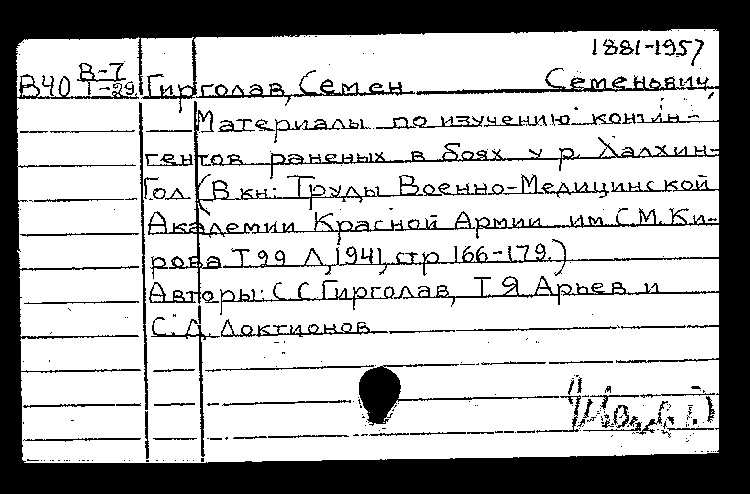 1881-1957
В-7
В40 Т-29 Гирголав, Семен Семенович,
Материалы по изучению контин-
гентов раненых в боях у р. Халхин-
Гол (В кн: Труды Военно-Медицинской
Академии Красной Армии им С.М. Ки-
рова Т 29 Л, 1941, стр 166-179.)
Авторы: С С Гирголав, Т Я Арьев и
С. Д. Локтионов